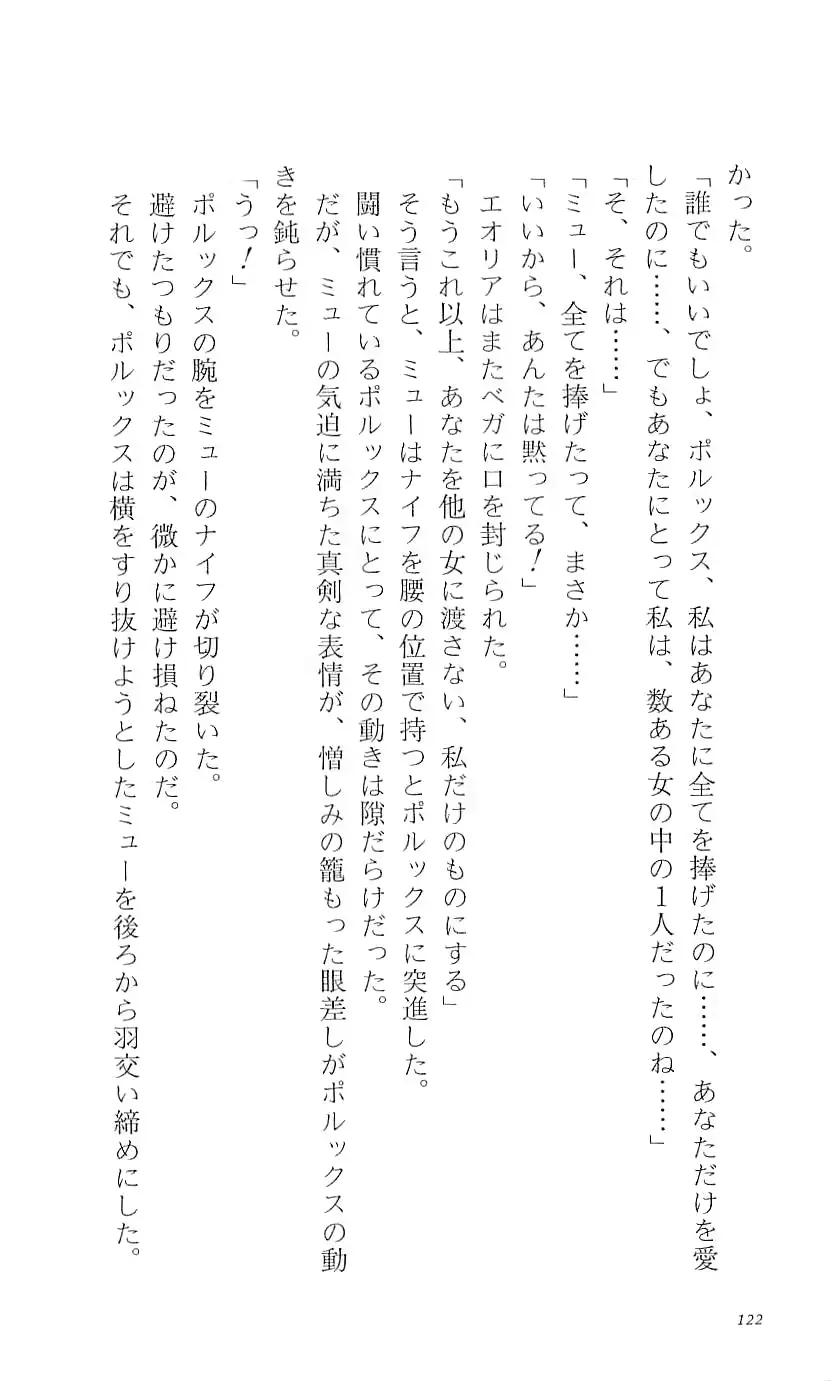 かった。
「誰でもいいでしょ、ポルックス、私はあなたに全てを捧げたのに……、あなただけを愛
したのに……、でもあなたにとって私は、数ある女の中の1人だったのね……」
「そ、それは……」
「ミュー、全てを捧げたって、まさか……」
「いいから、あんたは黙ってる！」
エオリアはまたベガに口を封じられた。
「もうこれ以上、あなたを他の女に渡さない、私だけのものにする」
そう言うと、ミューはナイフを腰の位置で持つとポルックスに突進した。
闘い慣れているポルックスにとって、その動きは隙だらけだった。
だが、ミューの気迫に満ちた真剣な表情が、憎しみの籠もった眼差しがポルックスの動
きを鈍らせた。
「うっ！」
ポルックスの腕をミューのナイフが切り裂いた。
避けたつもりだったのが、微かに避け損ねたのだ。
それでも、ポルックスは横をすり抜けようとしたミューを後ろから羽交い締めにした。
122